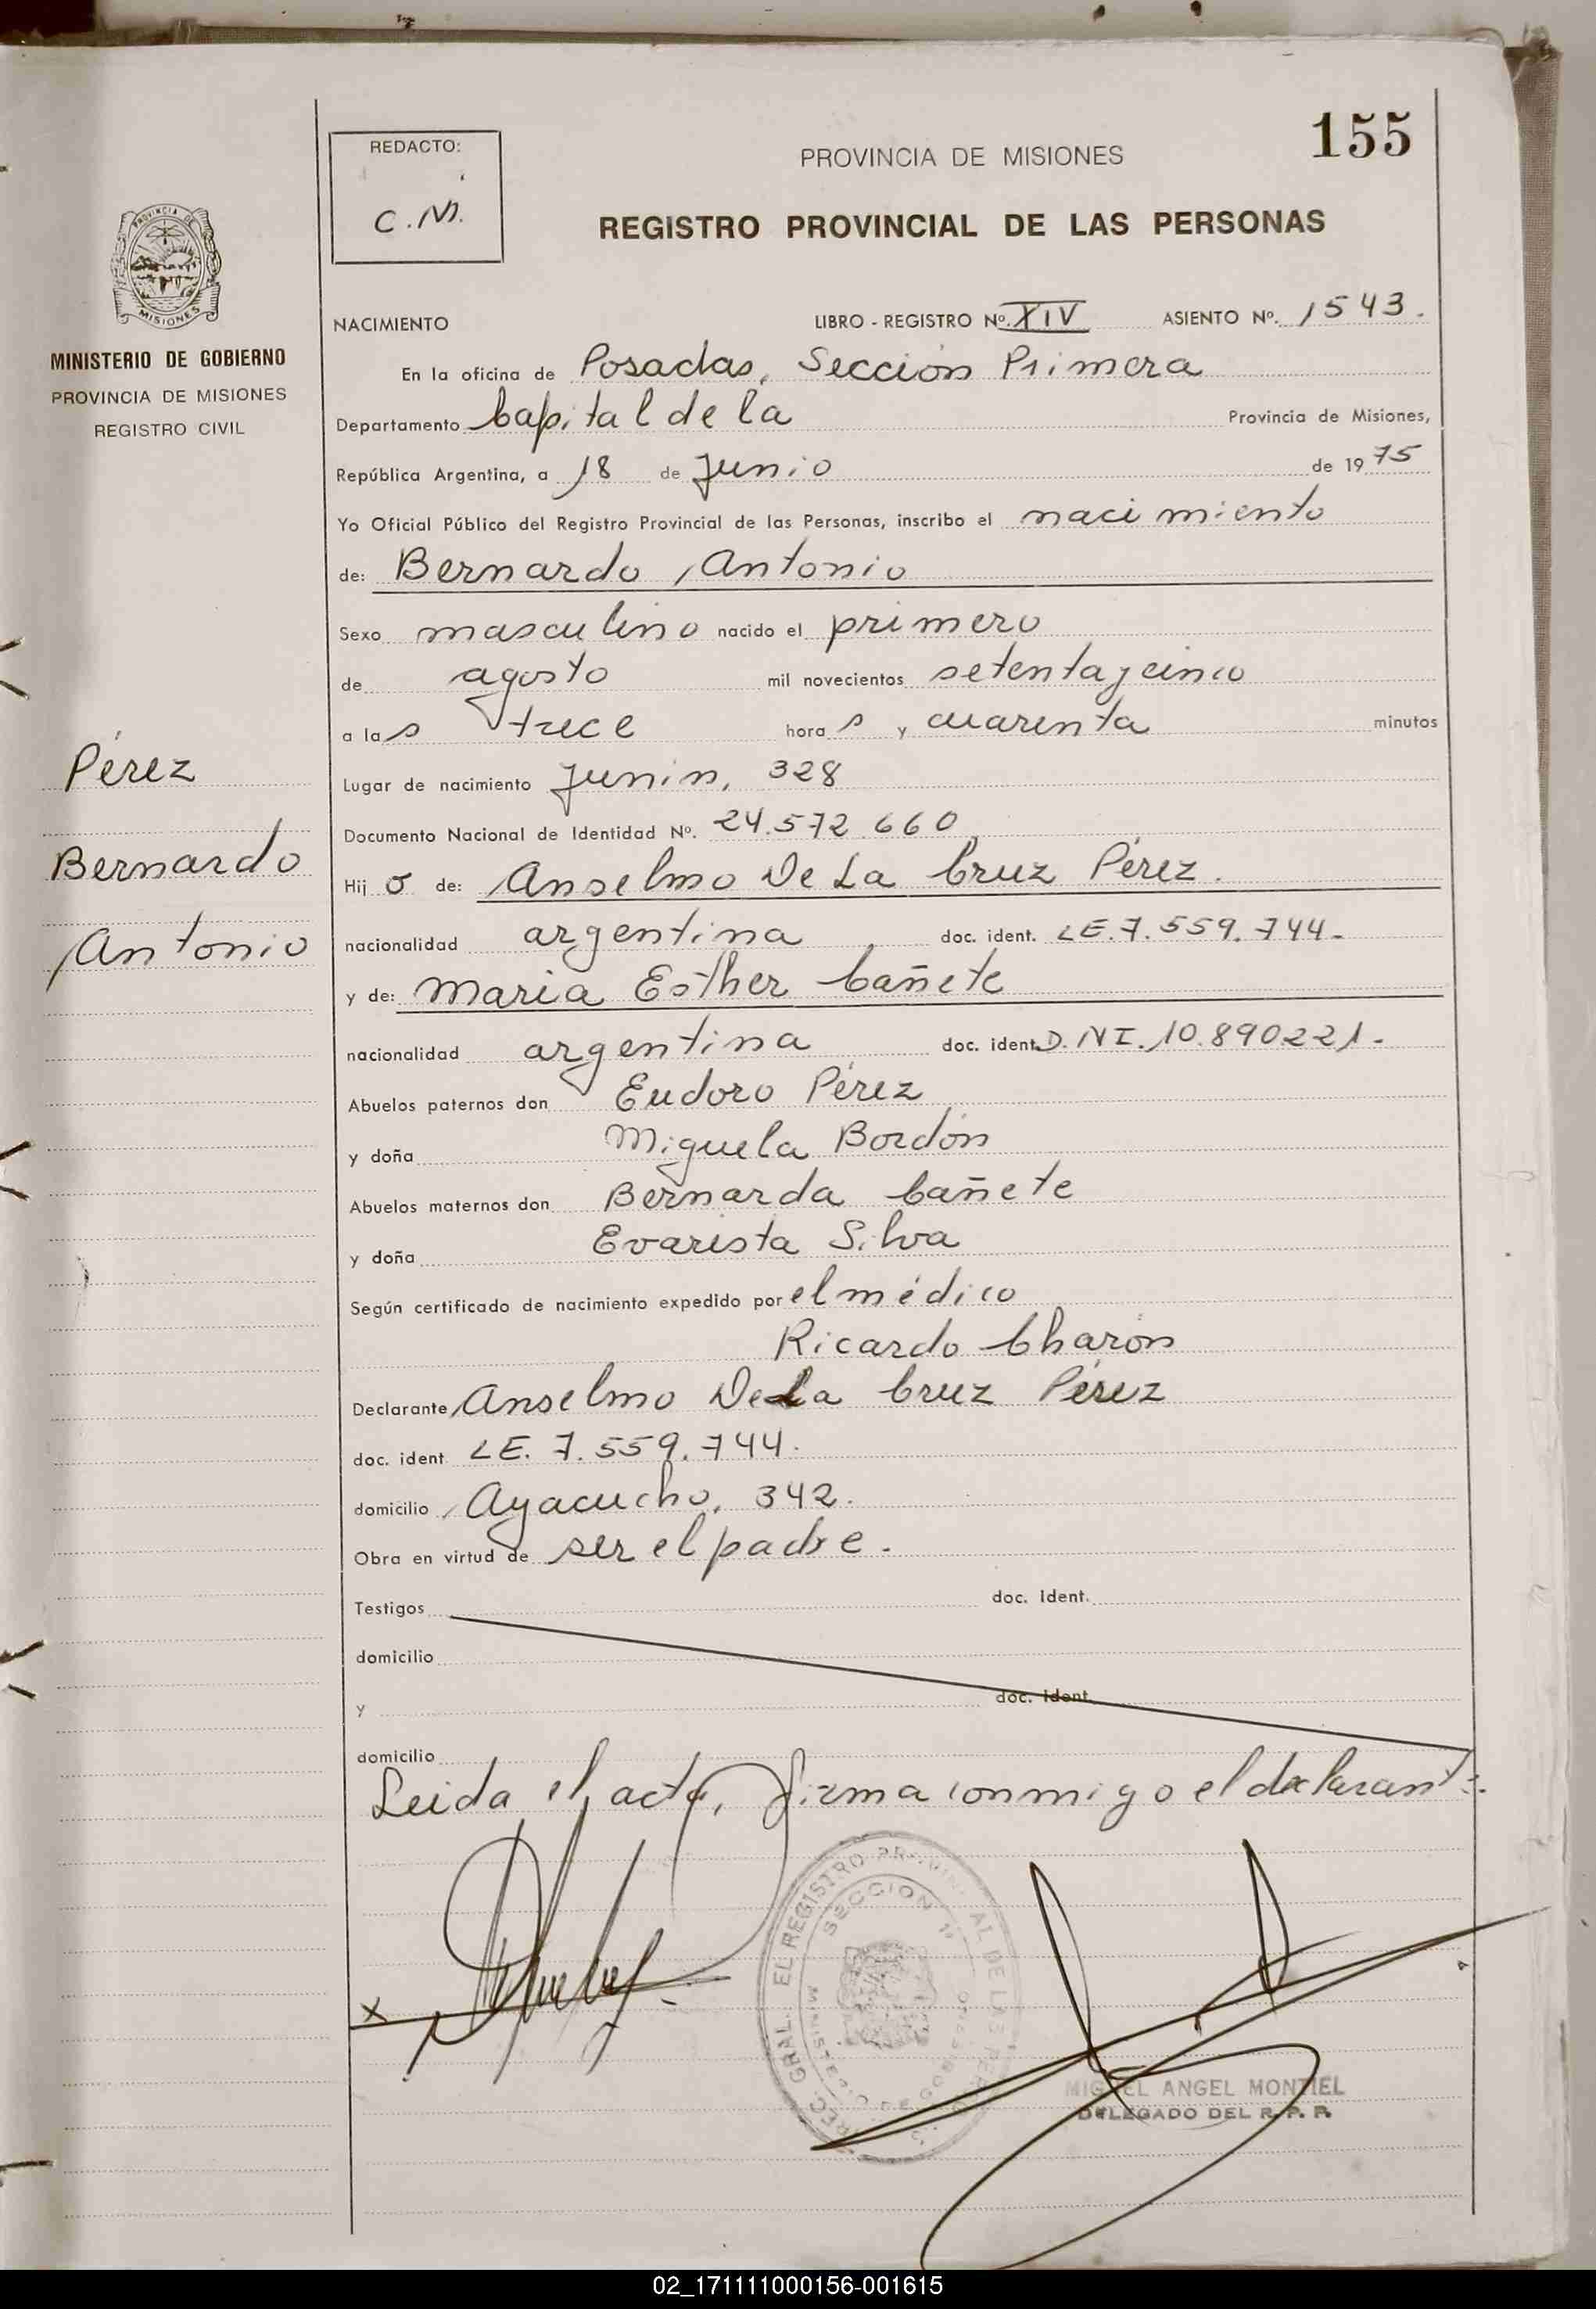 155
REDACTO:
C.M.
PROVINCIA DE MISIONES
REGISTRO PROVINCIAL DE LAS PERSONAS
MISIONES
MINISTERIO DE GOBIERNO
PROVINCIA DE MISIONES
REGISTRO CIVIL
Pérez
Bernardo
Antonio
NACIMIENTO LIBRO - REGISTRO Nº. XIV ASIENTO Nº. 1543.
En la oficina de Posadas, Sección Primera
Departamento Capital de la Provincia de Misiones,
República Argentina, a 18 de Junio de 1975
Yo Oficial Público del Registro Provincial de las Personas, inscribo el nacimiento
de: Bernardo Antonio
Sexo masculino nacido el primero
de agosto mil novecientos setenta y cinco
a las trece horas y cuarenta minutos
Lugar de nacimiento Junín, 328
Documento Nacional de Identidad Nº. 24.572.660
Hijo de: Anselmo De La Cruz Pérez.
nacionalidad argentina doc. ident. LE. 7.559.744-
y de: Maria Esther Cañete
nacionalidad argentina doc. ident. D.NI. 10.890221-
Abuelos paternos don Eudoro Pérez
y doña Miguela Bordón
Abuelos maternos don Bernarda Cañete
y doña Evarista Silva
Según certificado de nacimiento expedido por el médico
Ricardo Charón
Declarante Anselmo De La Cruz Pérez
doc. ident LE. 7.559.744.
domicilio Ayacucho, 342.
Obra en virtud de ser el padre.
Testigos doc. ident.
domicilio
y doc. ident.
domicilio
Leida el acta, firma conmigo el declarante.
x
SECCION 1ª
MIGUEL ANGEL MONTIEL
DELEGADO DEL R. P. P.
02_171111000156-001615